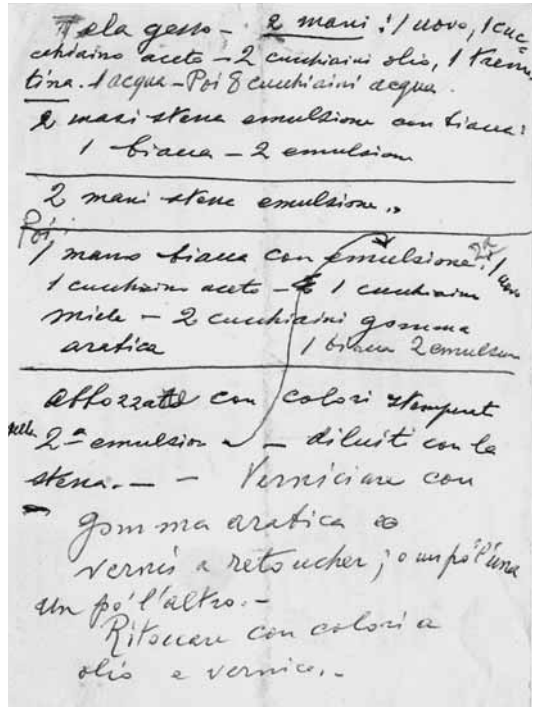 Tela gesso – 2 mani: 1 uovo, 1 cuc=
chiaino aceto – 2 cucchiaini olio, 1 tremen
tina. 1 acqua – Poi 8 cucchiaini acqua.
2 mani stessa emulsione con biacca:
1 biacca – 2 emulsion
2 mani stessa emulsione..
Poi:
1 mano biacca con emulsione 2ª: 1 uovo
1 cucchiaino aceto – 1 cucchiaino
miele – 2 cucchiaini gomma
arabica 1 biacca 2 emulsion
abbozzato con colori stemperat
nella 2ª emulsion – diluiti con la
stessa. – – Verniciare con
gomma arabica o
vernis a retoucher; o un pó l'una
un pó l'altro. –
Ritoccare con colori a
olio e vernice. –